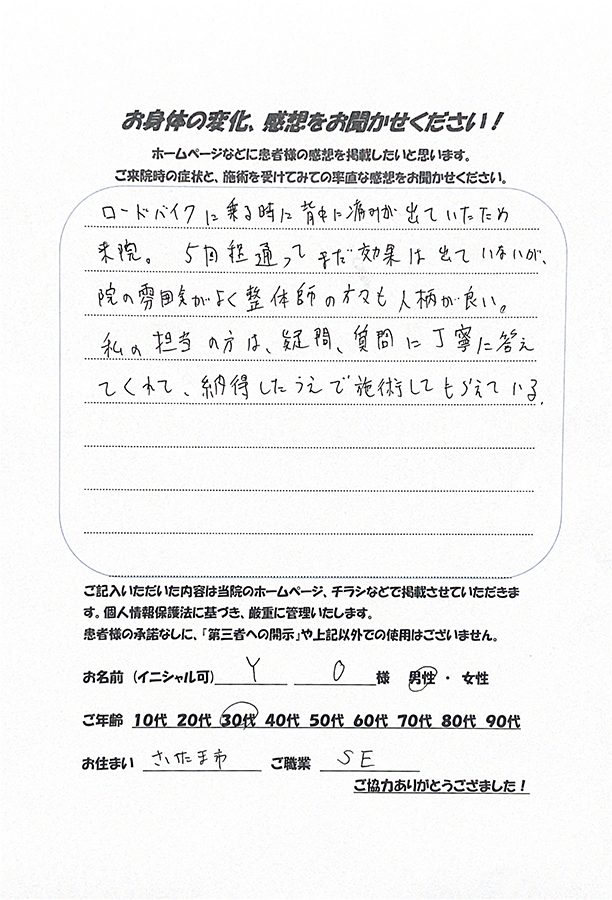 お身体の変化、感想をお聞かせください！
ホームページなどに患者様の感想を掲載したいと思います。
ご来院時の症状と、施術を受けてみての率直な感想をお聞かせください。
ロードバイクに乗る時に背中に痛みが出ていたため
来院。5回程通ってまだ効果は出ていないが、
院の雰囲気がよく整体師の方々も人柄が良い。
私の担当の方は、疑問、質問に丁寧に答え
てくれて、納得したうえで施術してもらえている。
ご記入いただいた内容は当院のホームページ、チラシなどで掲載させていただきま
す。個人情報保護法に基づき、厳重に管理いたします。
患者様の承諾なしに、「第三者への開示」や上記以外での使用はございません。
お名前（イニシャル可） Y O 様 男性・女性
ご年齢 10代 20代 30代 40代 50代 60代 70代 80代 90代
お住まい さいたま市 ご職業 SE
ご協力ありがとうござました！